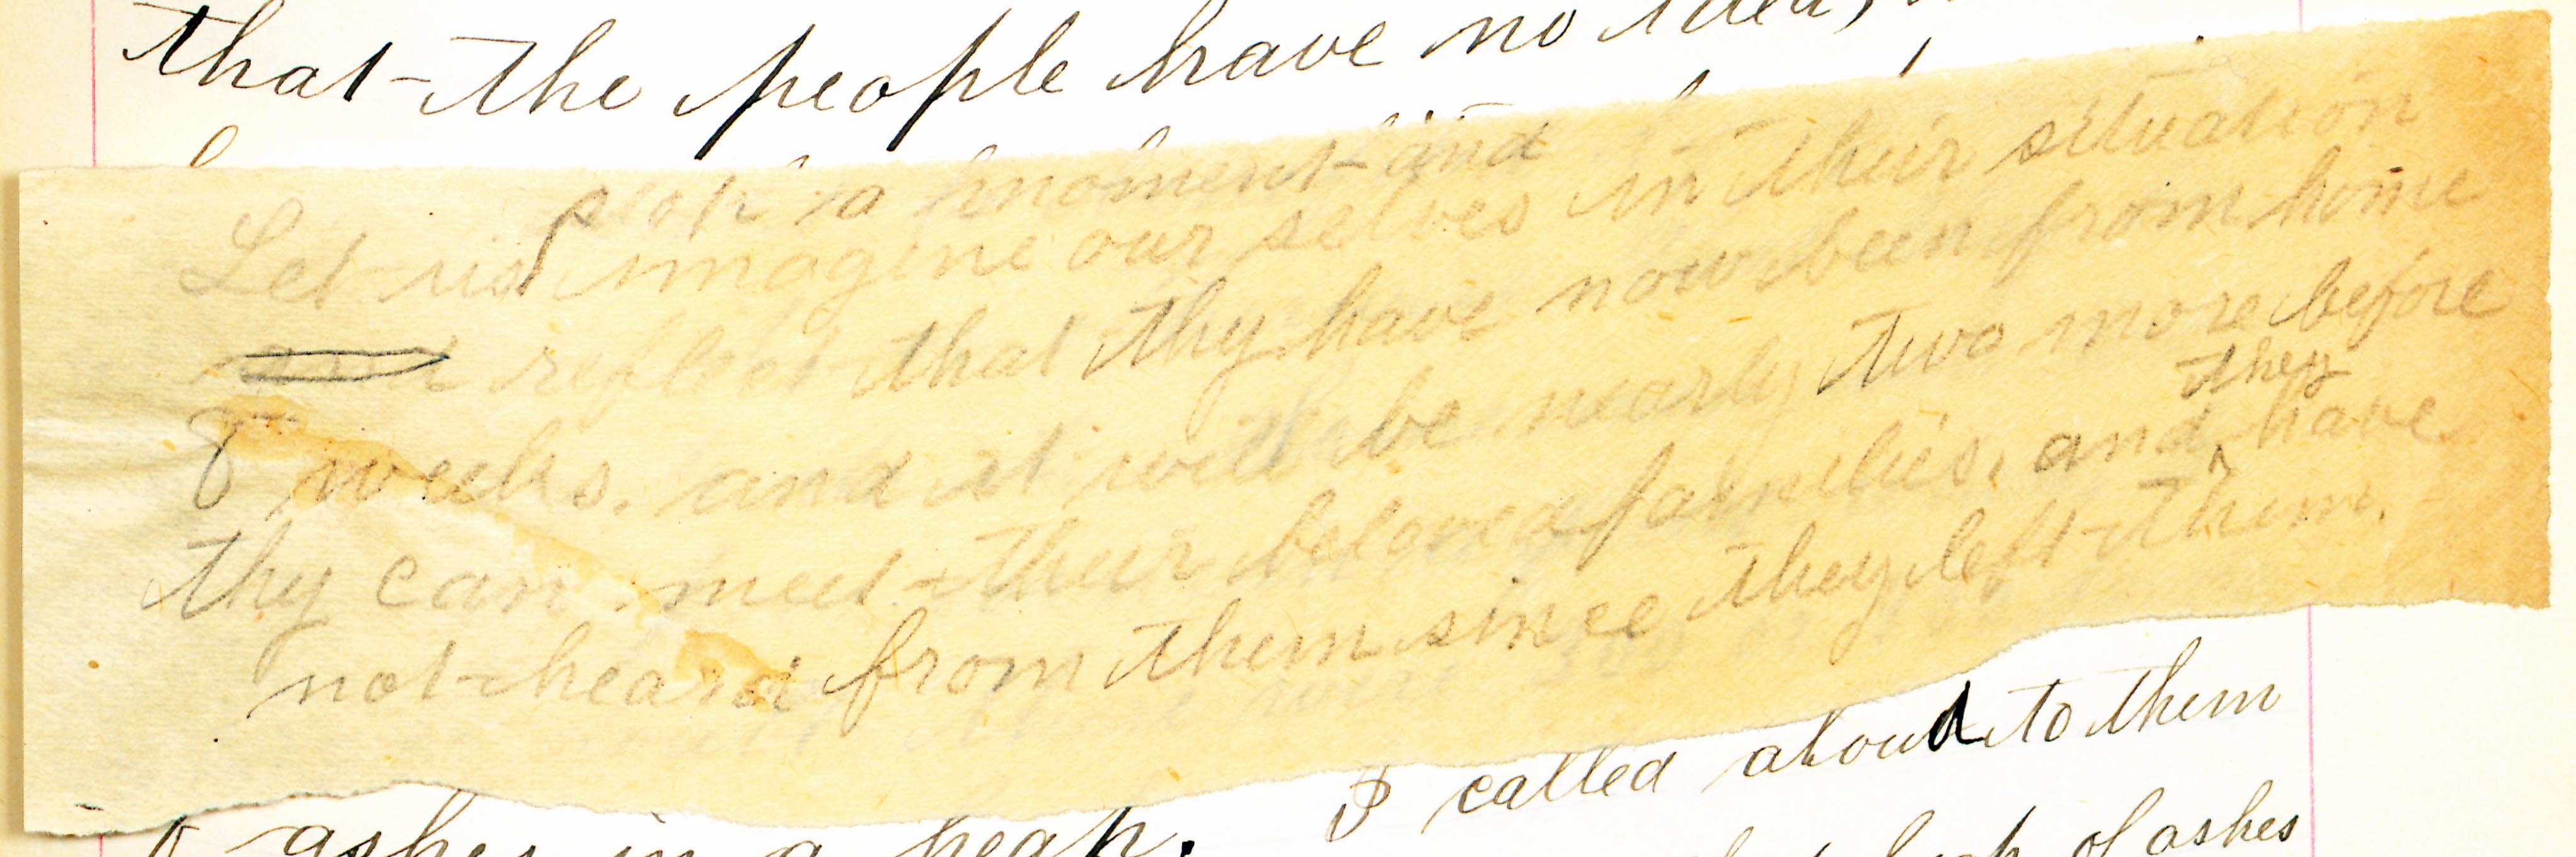 that the people have no idea,
stop a moment and
Let us imagine our selves in their situation
reflect that thy have now been from home
8 weeks. and it will be nearly two more before
they
thy can meet their beloved families. and have
not heard from them since they left them.
I called aloud to them
ashes in a heap. heap of ashes